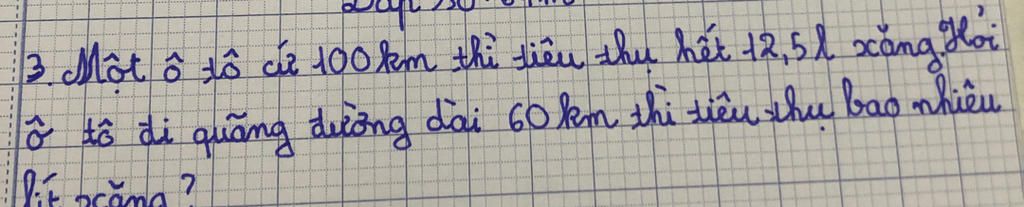 3. Một ô tô cứ 100km thì tiêu thụ hết 12,5l xăng. Hỏi
ô tô đi quãng đường dài 60km thì tiêu thụ bao nhiêu
lít xăng?